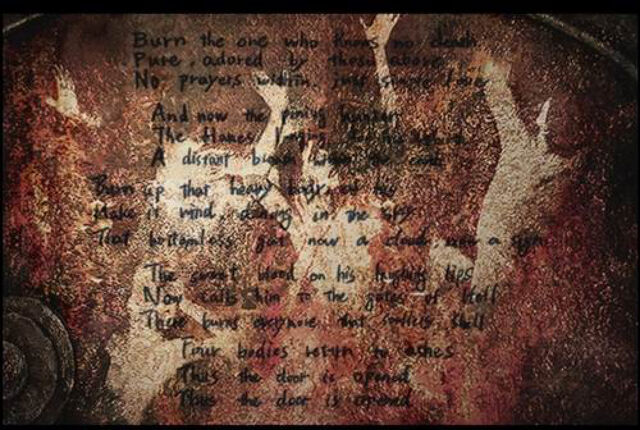 Burn the one who knows no death
Pure, adored by those above
No prayers within, just simple
And now the pining
The flames
A distant the
Burn up that heavy body of his
Make it wind, dancing in the sky
That bottomless gut now a cloud, now a
The sweet blood on his laughing lips
Now calls him to the gates of Hell
There burns that shell
Four bodies return to ashes
Thus the door is opened
Thus the door is opened